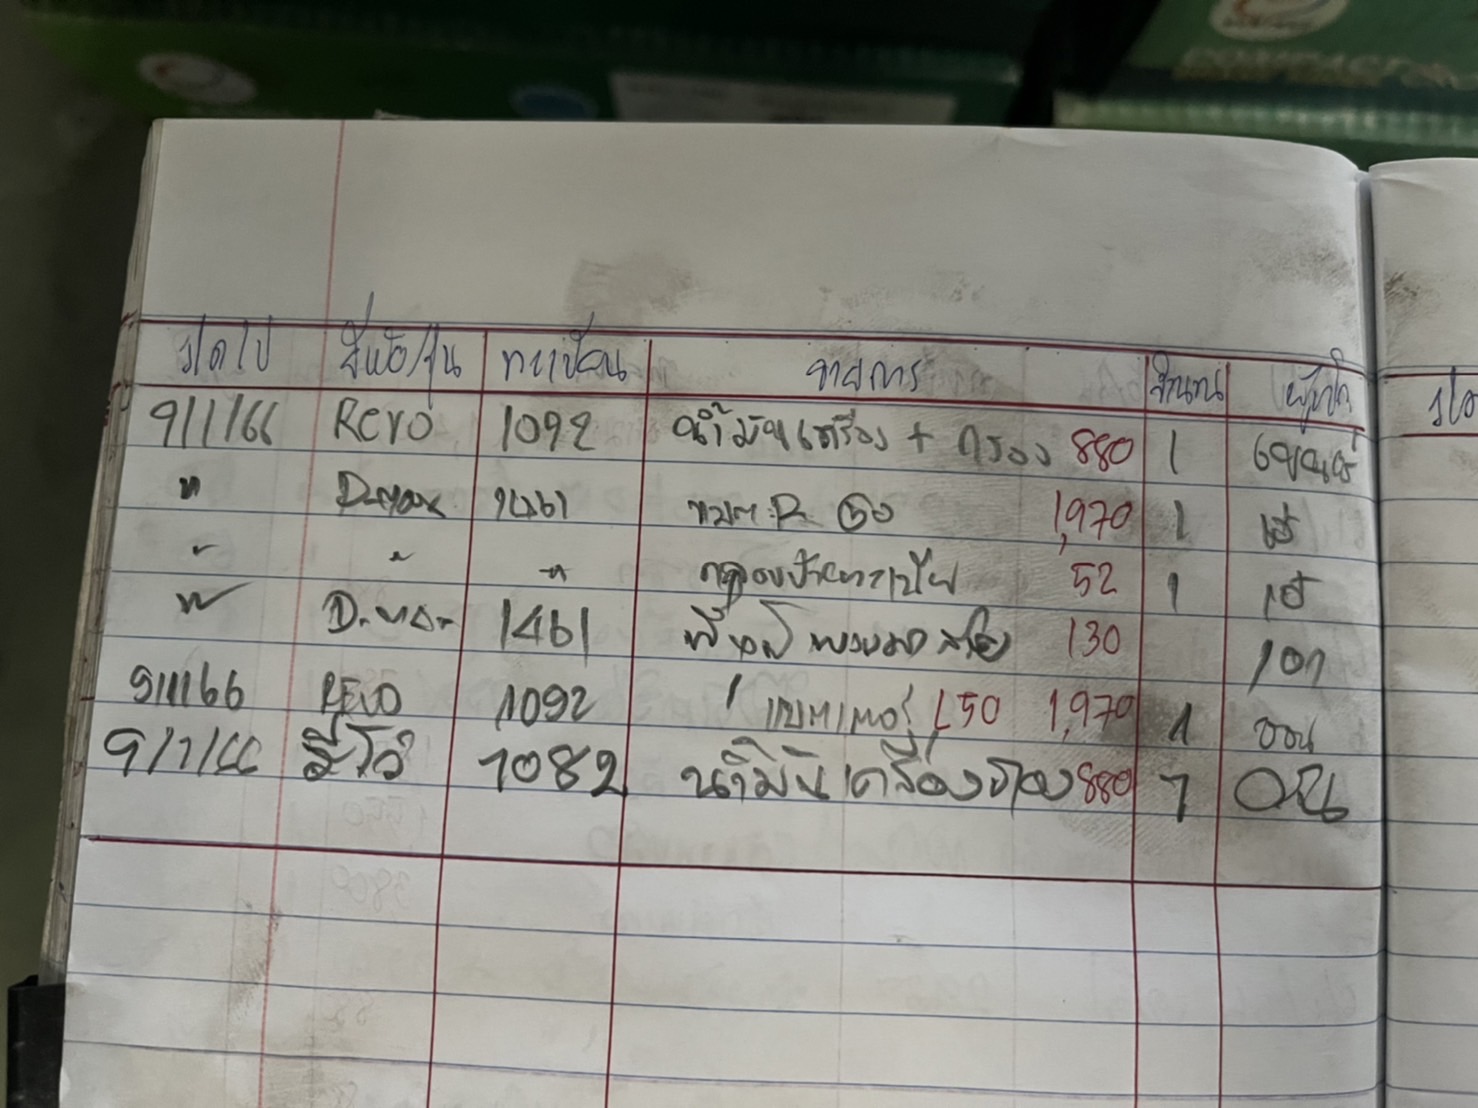 ว/ด/ป ยี่ห้อ/รุ่น ทะเบียน รายการ จำนวน ผู้เบิก
9/1/66 REVO 1092 น้ำมันเครื่อง + กรอง 880 1
" D-max 1461 แบต R 50 1,970 1 เอ๋
" " " 52 1 เอ๋
" D-max 1461 130 เอก
9/1/66 REVO 1092 แบตเตอรี่ L50 1,970 1 ออน
9/1/66 รีโว่ 1082 น้ำมันเครื่องกรอง 880 1